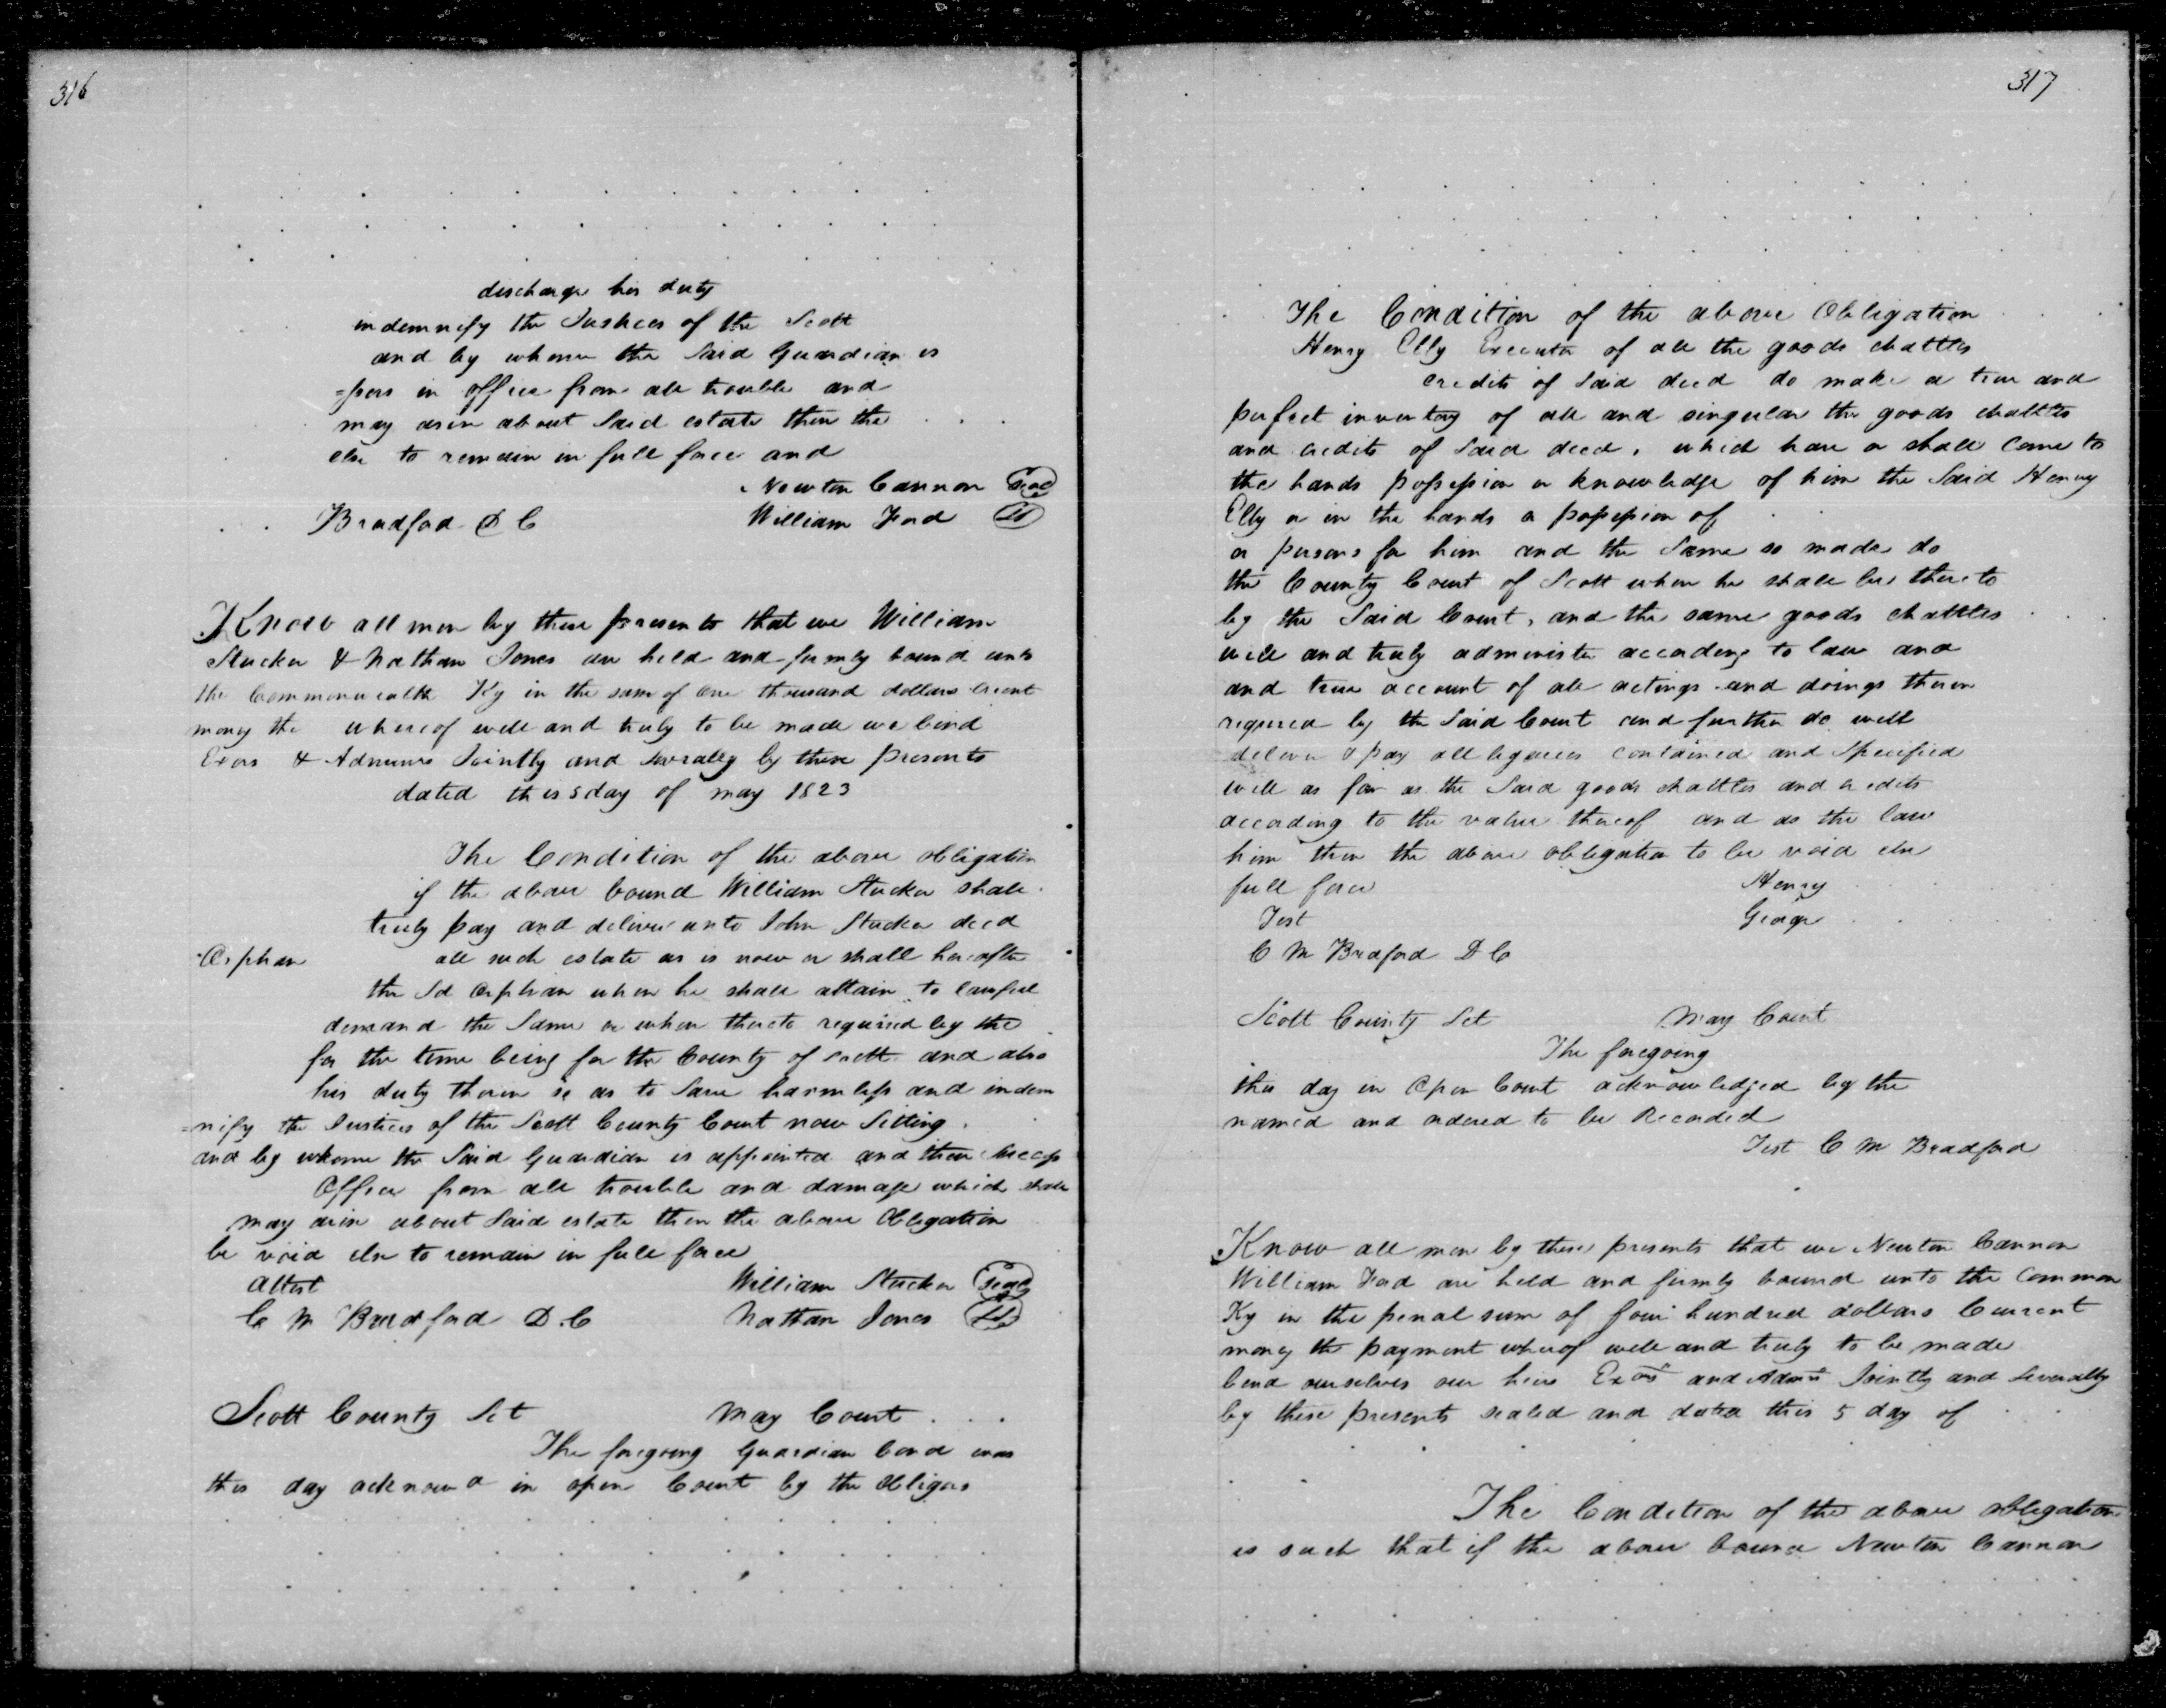 316
discharge his duty
indemnify the Justices of the Scott
and by whome the Said Guardian is
=pors in office from all trouble and
may arise about Said estate then the
else to remain in full force and
Newton Cannon Seal
Bradford D C William Ford Ls
Know all men by these presents that we William
Stucker & Nathan Jones are held and firmly bound unto
the Commonwealth Ky in the sum of one thousand dollars
money the whereof well and truly to be made we bind
Exors & Jointly and by these presents
dated this 5 day of may 1823
The Condition of the above obligation
if the above bound William Stucker shall
truly pay and deliver unto John Stucker decd
Orphan all such estate as is now or shall hereafter
the Sd Orphan when he shall attain to lawful
demand the Same or when thereto required by the
for the time being for the County of Scott and also
his duty therein so as to Save harmless and indem
=nify the Justices of the Scott County Court now Sitting
and by whome the Said Guardian is appointed and their Success
Office from all trouble and damage which shall
may arise about Said estate then the above Obligation
be void else to remain in full force
Attest William Stucker Seal
C M Bradford D. C Nathan Jones Ls
Scott County Sct May Court
The foregoing Guardian bond was
this day acknowd in open Court by the Obligors
317
The Condition of the above Obligation
Henry Elly Executor of all the goods chattles
credits of Said decd do make a true and
perfect inventory of all and singular the goods chattles
and credits of Said decd, which have or shall come to
the hands possession or knowledge of him the Said Henry
Elly or in the hands or possession of
or persons for him and the Same so made do
the County Court of Scott when he shall be thereto
by the Said Court, and the same goods chattles
well and truly administer according to law and
and true account of all actings and doings therein
required by the Said Court and further do well
deliver & pay all legacies contained and Specified
will as far as the Said goods chattles and credits
according to the value thereof and as the law
him then the above obligation to be void else
full force Henry
Test George
C M Bradford D C
Scott County Sct May Court
The foregoing
this day in Open Court acknowledged by the
named and ordered to be Recorded
Test C M Bradford
Know all men by these presents that we Newton Cannon
William Ford are held and firmly bound unto the Common
Ky in the penal sum of four hundred dollars Current
money the payment whereof well and truly to be made
bind ourselves our heirs Exors and Admrs Jointly and Severally
by these presents sealed and dated this 5 day of
The Condition of the above obligation
is such that if the above bound Newton Cannon